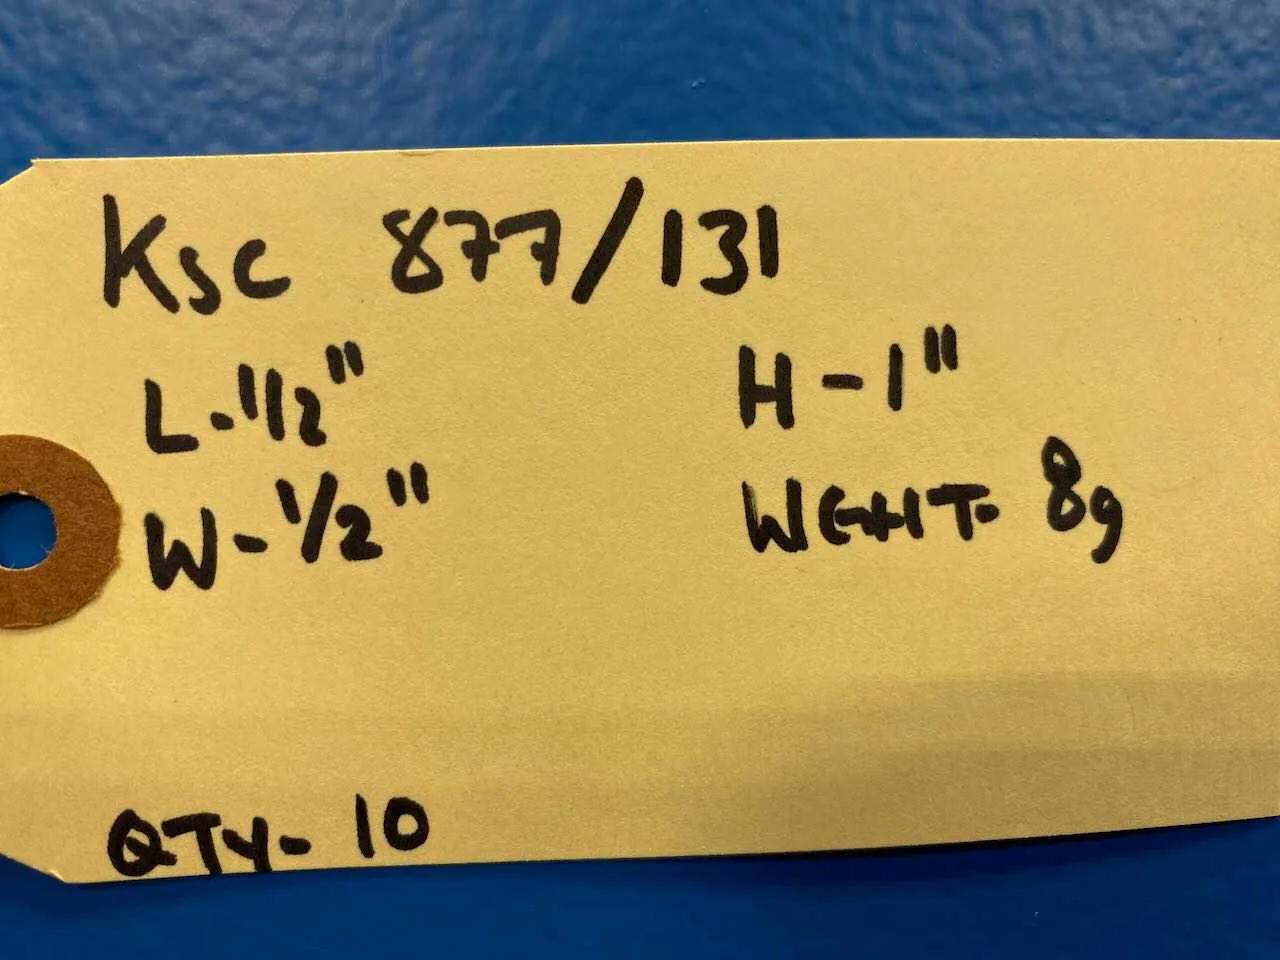 Ksc 877/131
L-11/2" H-1"
W-1/2" WGHT- 8g
QTY- 10